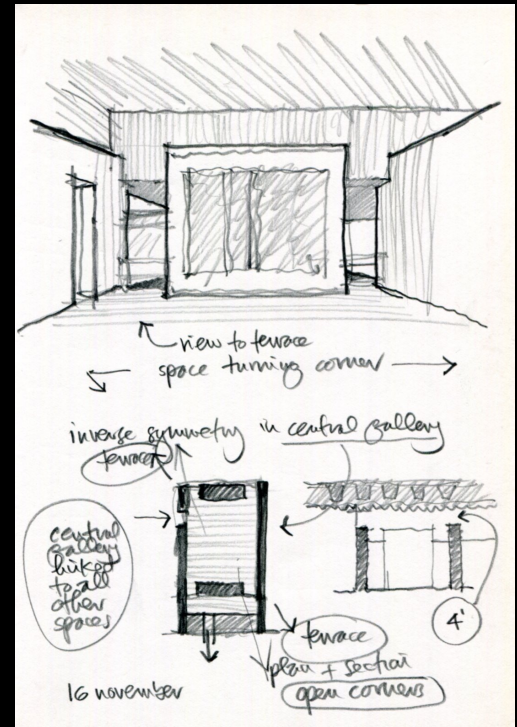 view to terrace
space turning corner
inverse symmetry in central gallery
terrace
central
gallery
linked
to all
other
spaces
4'
terrace
plan + section
open corners
16 november